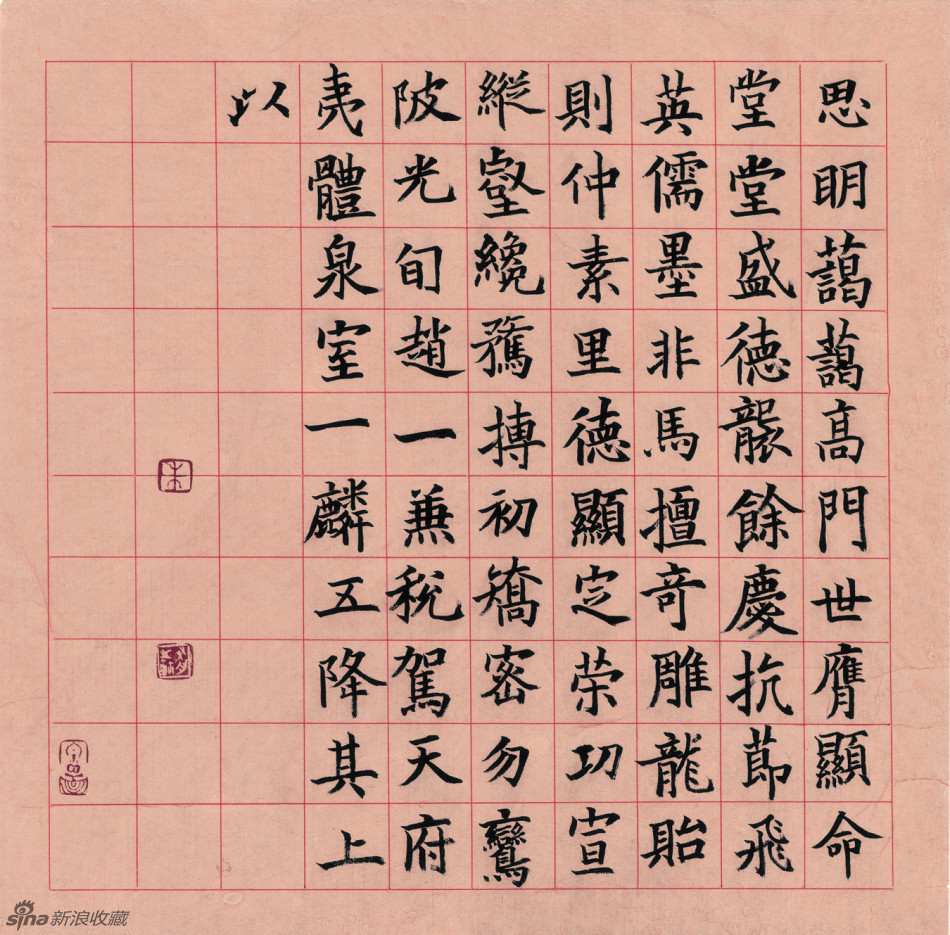 思眀藹藹髙門世膺顯命
堂堂盛德襲餘慶抗莭飛
英儒墨非馬擅奇雕龍貽
則仲素里德顯定荣功宣
縱壑纔鶩搏初矯密勿鸞
陂光旬趙一兼税駕天府
夷體泉室一麟五降其上
以
sina新浪收藏